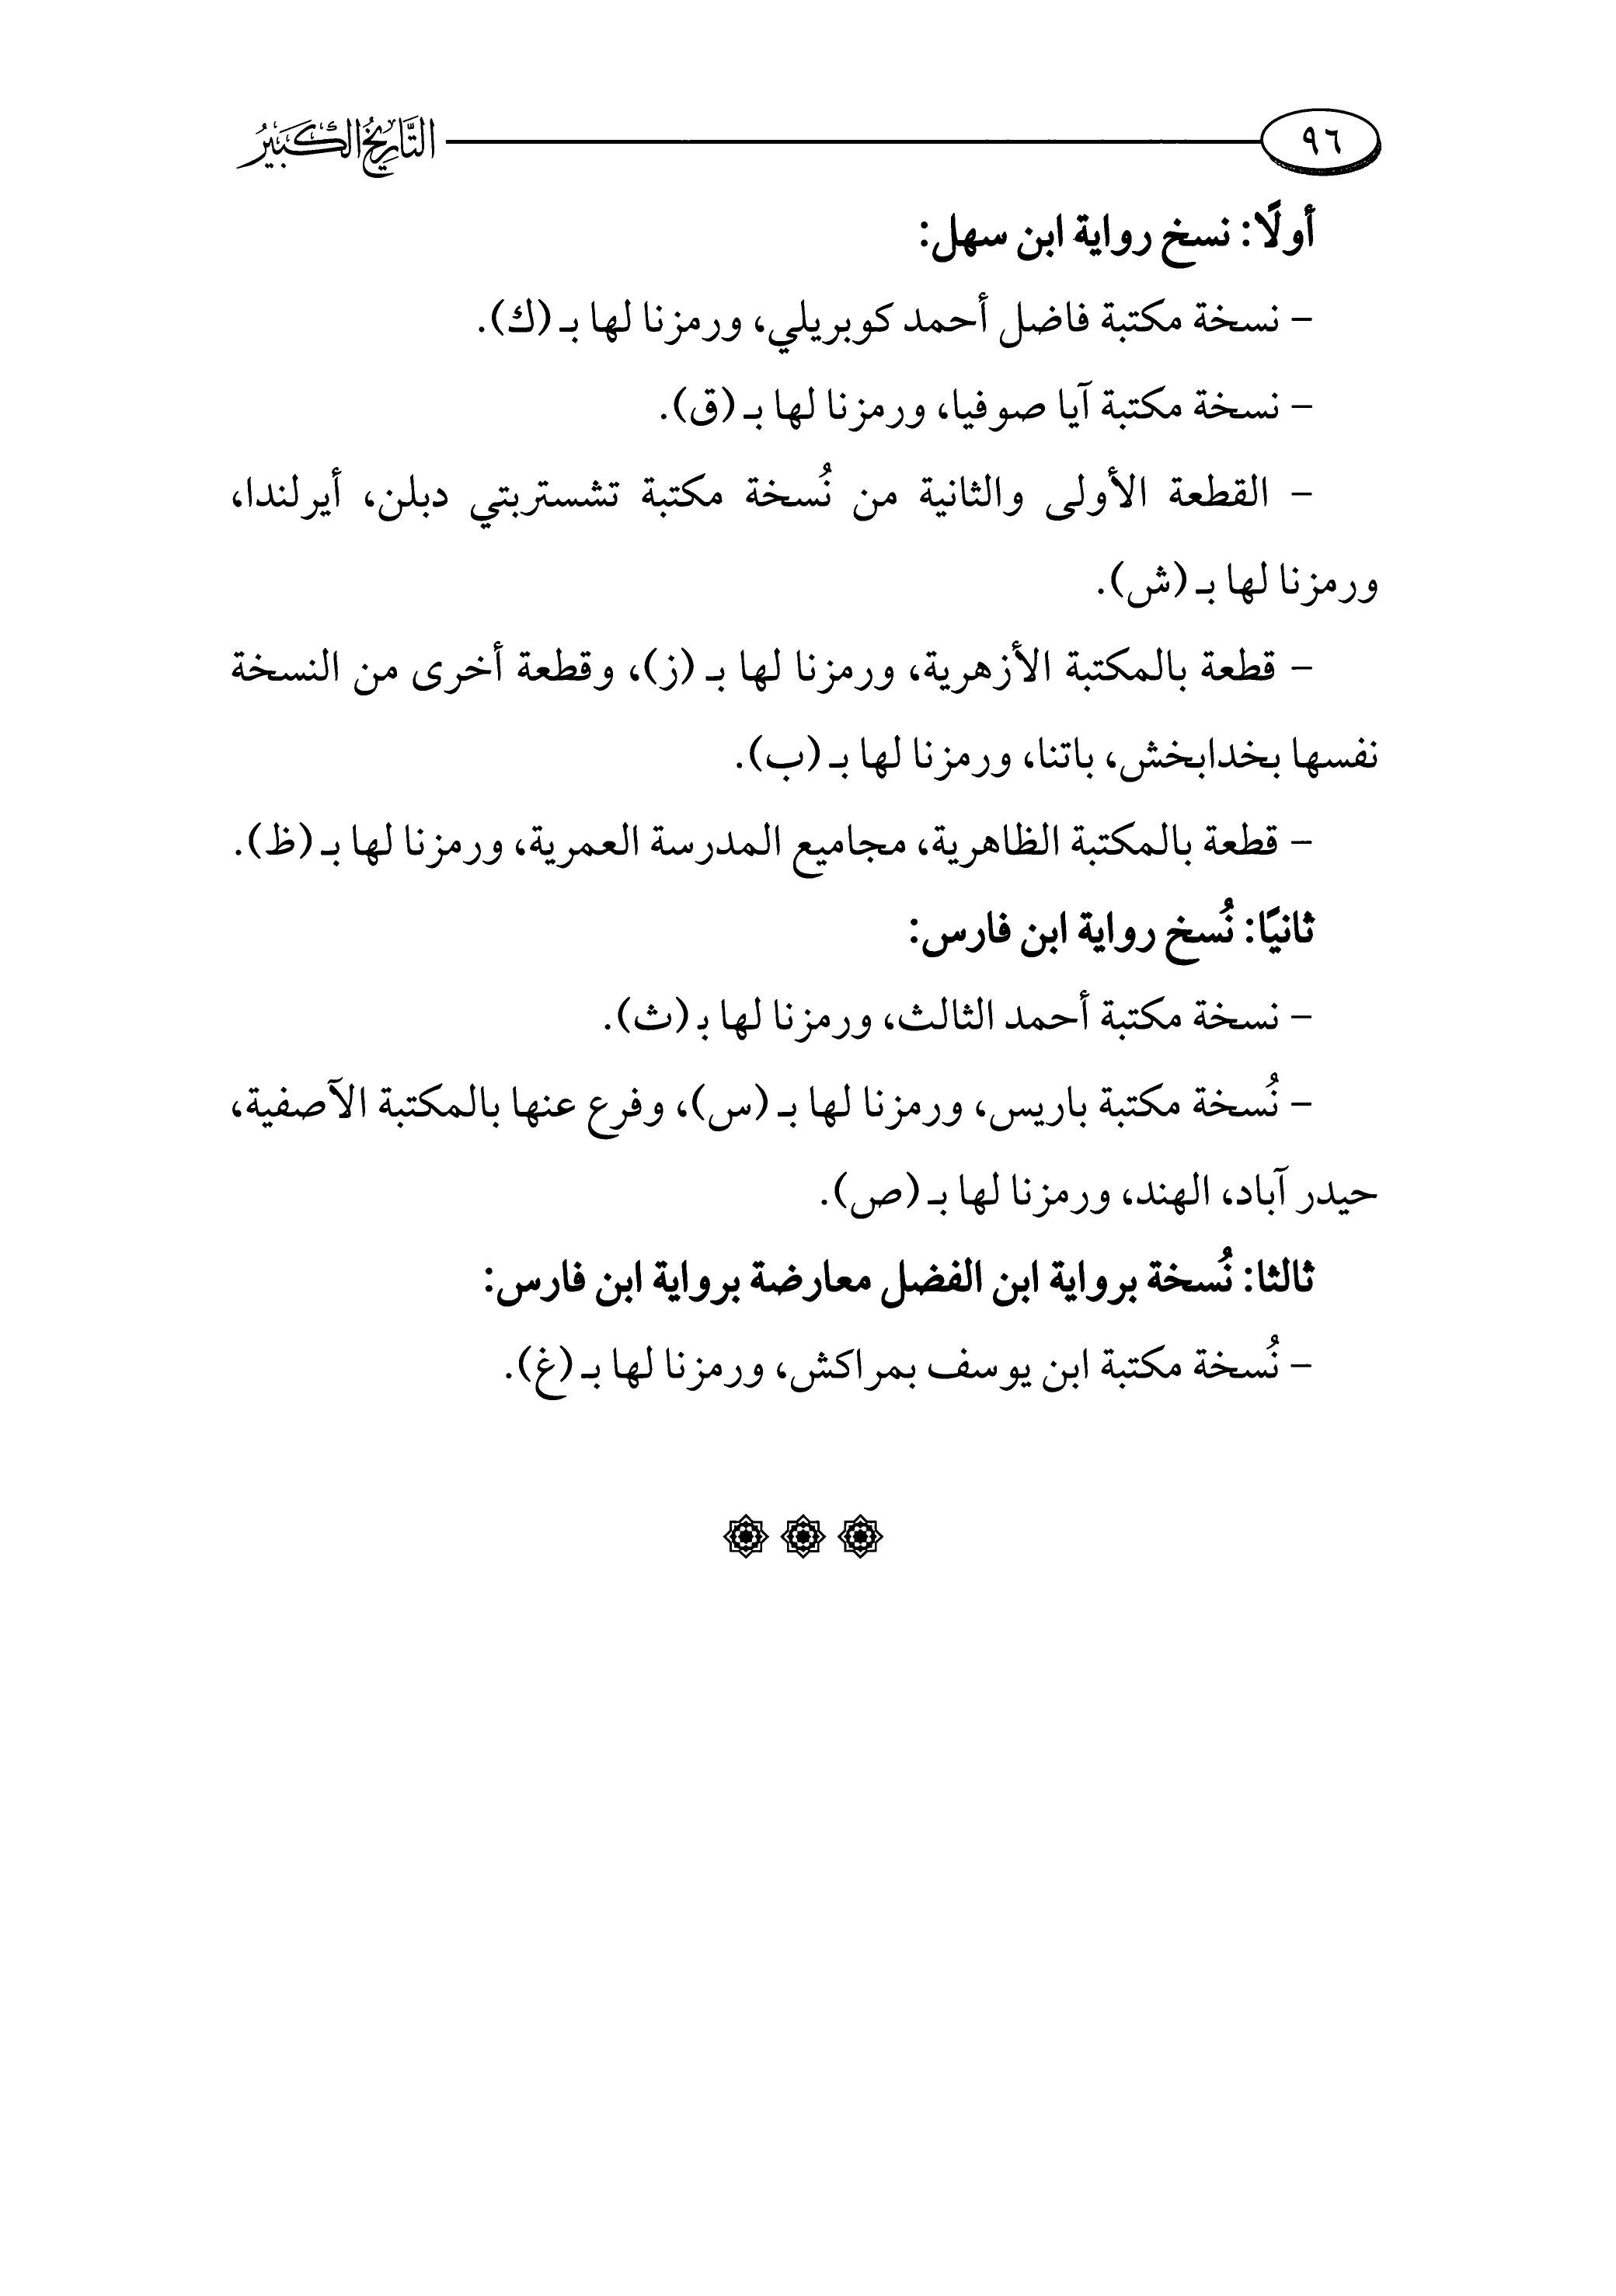 ٩٦ التَّارِيخُ الكَبِيرُ
أولًا: نسخ رواية ابن سهل:
– نسخة مكتبة فاضل أحمد كوبريلي، ورمزنا لها بـ (ك).
– نسخة مكتبة آيا صوفيا، ورمزنا لها بـ (ق).
– القطعة الأولى والثانية من نُسخة مكتبة تشستربتي دبلن، أيرلندا،
ورمزنا لها بـ (ش).
– قطعة بالمكتبة الأزهرية، ورمزنا لها بـ (ز)، وقطعة أخرى من النسخة
نفسها بخدابخش، باتنا، ورمزنا لها بـ (ب).
– قطعة بالمكتبة الظاهرية، مجاميع المدرسة العمرية، ورمزنا لها بـ (ظ).
ثانيًا: نُسخ رواية ابن فارس:
– نسخة مكتبة أحمد الثالث، ورمزنا لها بـ (ث).
– نُسخة مكتبة باريس، ورمزنا لها بـ (س)، وفرع عنها بالمكتبة الآصفية،
حيدر آباد، الهند، ورمزنا لها بـ (ص).
ثالثا: نُسخة برواية ابن الفضل معارضة برواية ابن فارس:
– نُسخة مكتبة ابن يوسف بمراكش، ورمزنا لها بـ (غ).